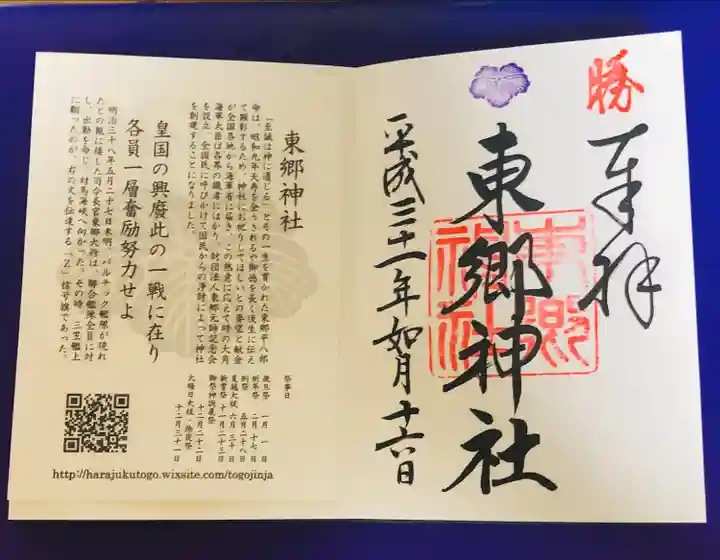 勝
奉拝
東郷神社
東郷神社
平成三十一年如月十六日
東郷神社
「至誠は神に通じる」とその一生を貫かれた東郷平八郎
命は、昭和九年天寿を全うされるや御徳を長く後生に伝え
て顕彰するため、神社にお祀りしてほしいとの要望と献金
が全国各地から海軍省に届き、この熱意に応えて時の大角
海軍大臣は各界の識者にはかり、財団法人東郷元帥記念会
を設立、全国民に呼びかけて国民からの浄財によって神社
を創建することになりました。
皇国の興廃此の一戦に在り
各員一層奮励努力せよ
明治三十八年五月二十七日未明、バルチック艦隊が現れ
たとの報に接した司令長官東郷大将は、聯合艦隊全員に対
し、出動を命じ、対馬海峡へ向かった。その時、三笠艦上
に翻ったのが、右の文を伝達する「Z」信号旗であった。
祭事日
歳旦祭 一月一日
祈年祭 二月十七日
例祭 五月二十八日
夏越大祓 六月三十日
新嘗祭 十一月二十三日
御祭神誕辰祭 十二月二十二日
大晦日大祓・除夜祭 十二月三十一日
http://harajukutogo.wixsite.com/togojinja